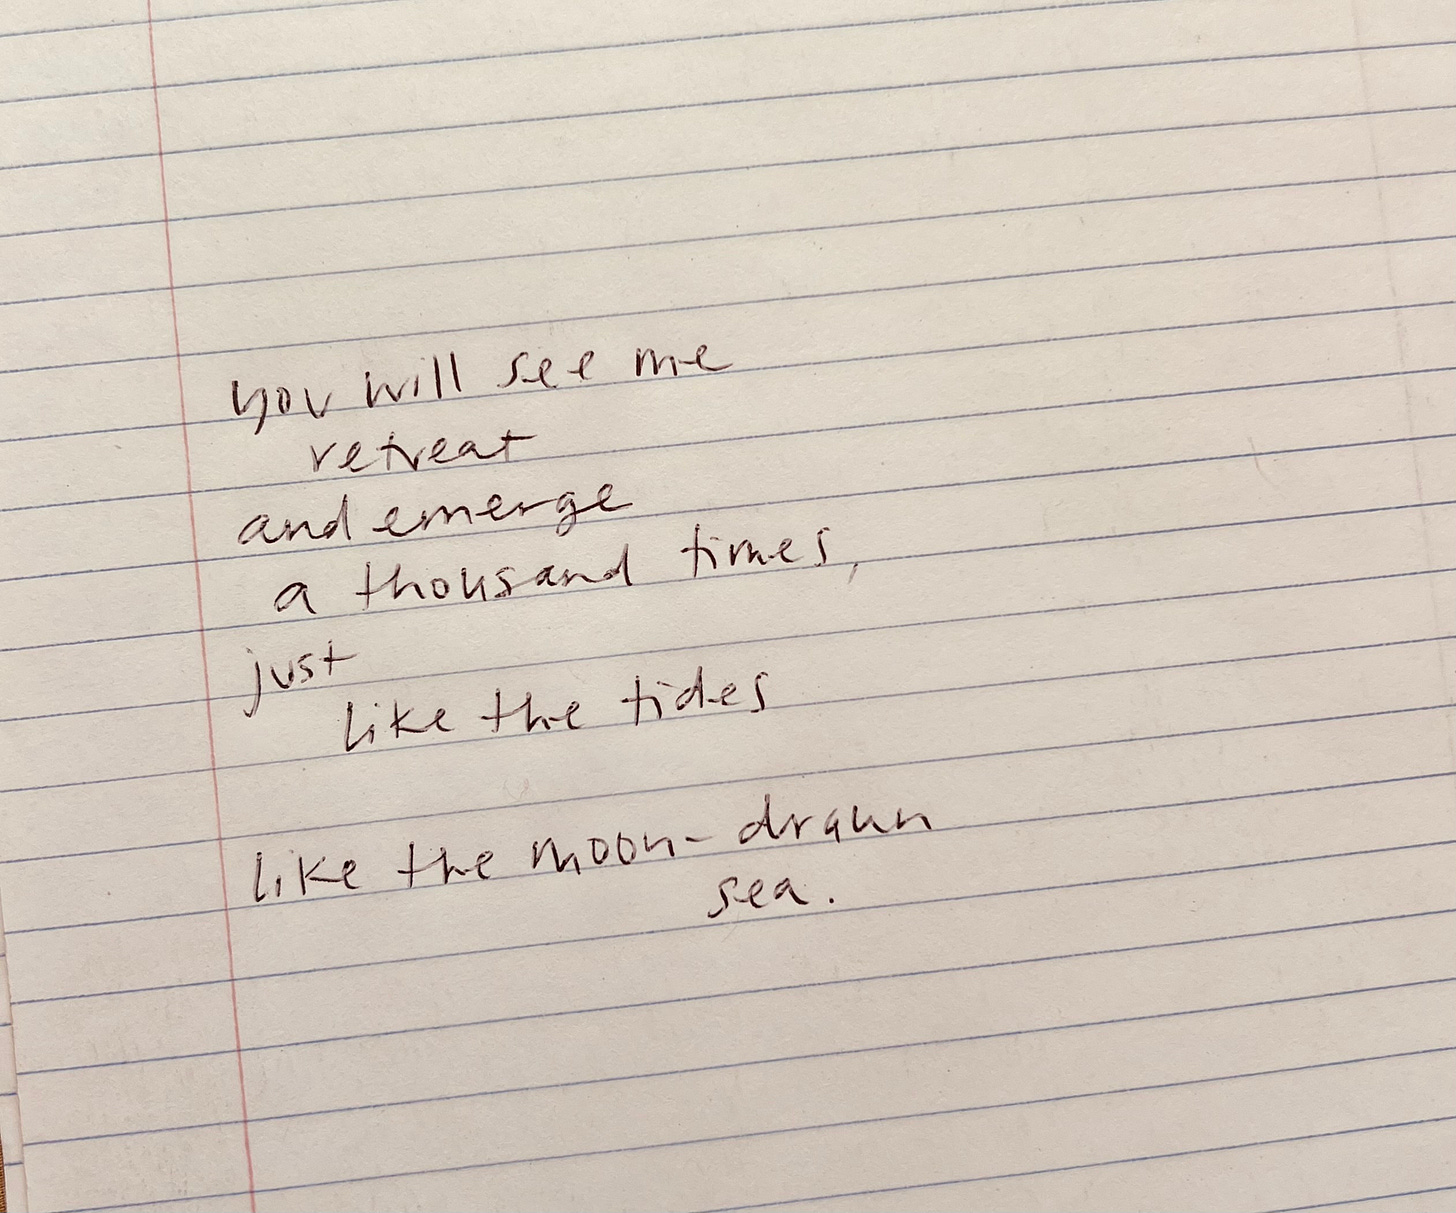 you will see me
retreat
and emerge
a thousand times,
just
like the tides
like the moon-drawn
sea.